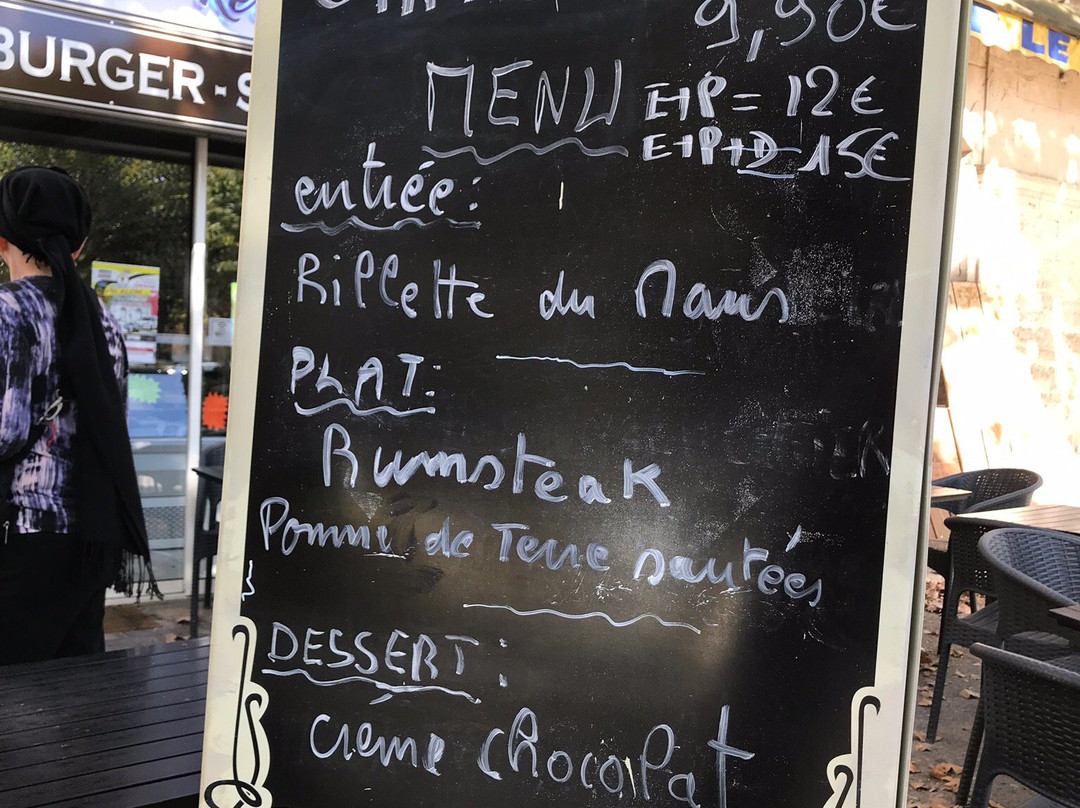 BURGER - S
9,90€
MENU E+P = 12€
E+P+D 15€
entrée :
Rillette du Mans
PLAT :
Rumsteak
Pomme de Terre sautées
DESSERT :
crème chocolat
LE